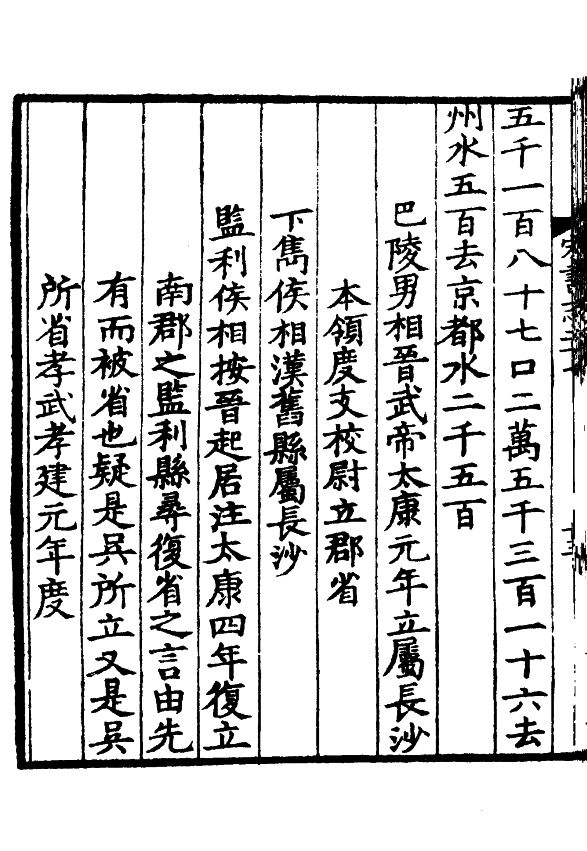 五千一百八十七口二萬五千三百一十六去
州水五百去京都水二千五百
巴陵男相晉武帝太康元年立屬長沙
本領度支校尉立郡省
下雋侯相漢舊縣屬長沙
監利侯相按晉起居注太康四年復立
南郡之監利縣尋復省之言由先
有而被省也疑是吳所立又是吳
所省孝武孝建元年度